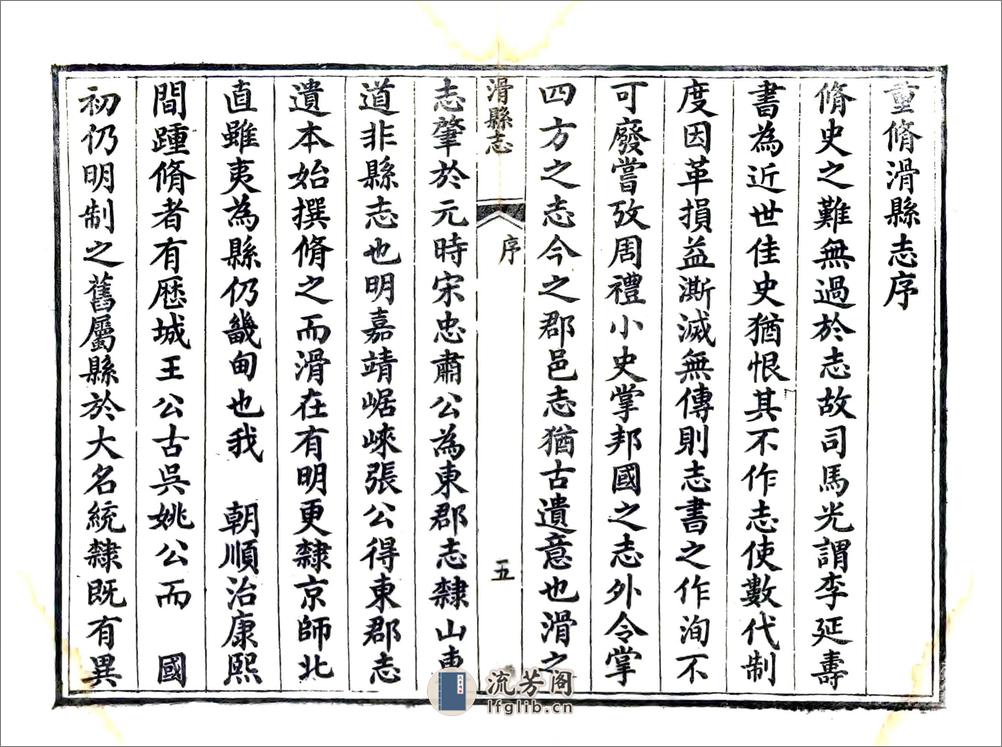 重脩滑縣志序
脩史之難無過於志故司馬光謂李延壽
書為近世佳史猶恨其不作志使數代制
度因革損益澌滅無傳則志書之作洵不
可廢嘗攷周禮小史掌邦國之志外令掌
四方之志今之郡邑志猶古遺意也滑之
滑縣志
序
五
志肇於元時宋忠肅公為東郡志隸山東
道非縣志也明嘉靖崌崍張公得東郡志
遺本始撰脩之而滑在有明更隸京師北
直雖夷為縣仍畿甸也我 朝順治康熙
間踵脩者有厯城王公古吳姚公而 國
初仍明制之舊屬縣於大名統隸既有異
流芳阁
lfglib.cn